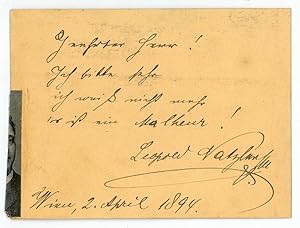 Geehrter Herr!
Ich bitte sehr
ich weiß nicht mehr
es ist ein Malheur!
Leopold Natzler
Wien, 2. April 1894.